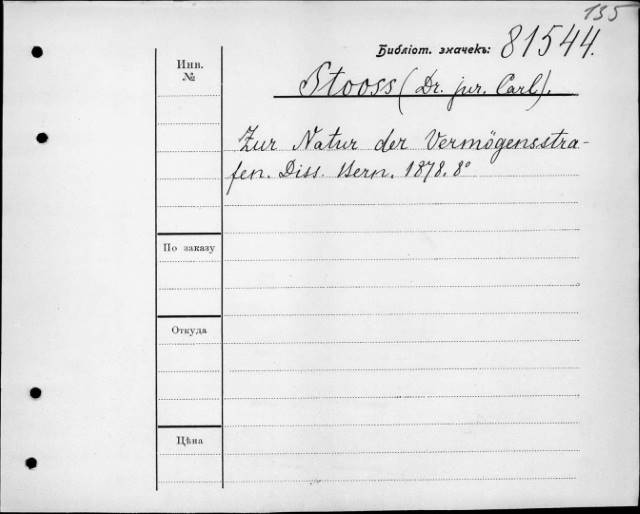 135
Библіот. значекъ: 81544.
Инв.
№
Stooss (Dr. jur. Carl).
Zur Natur der Vermögensstra-
fen. Diss. Bern. 1878. 8°
По заказу
Откуда
Цѣна